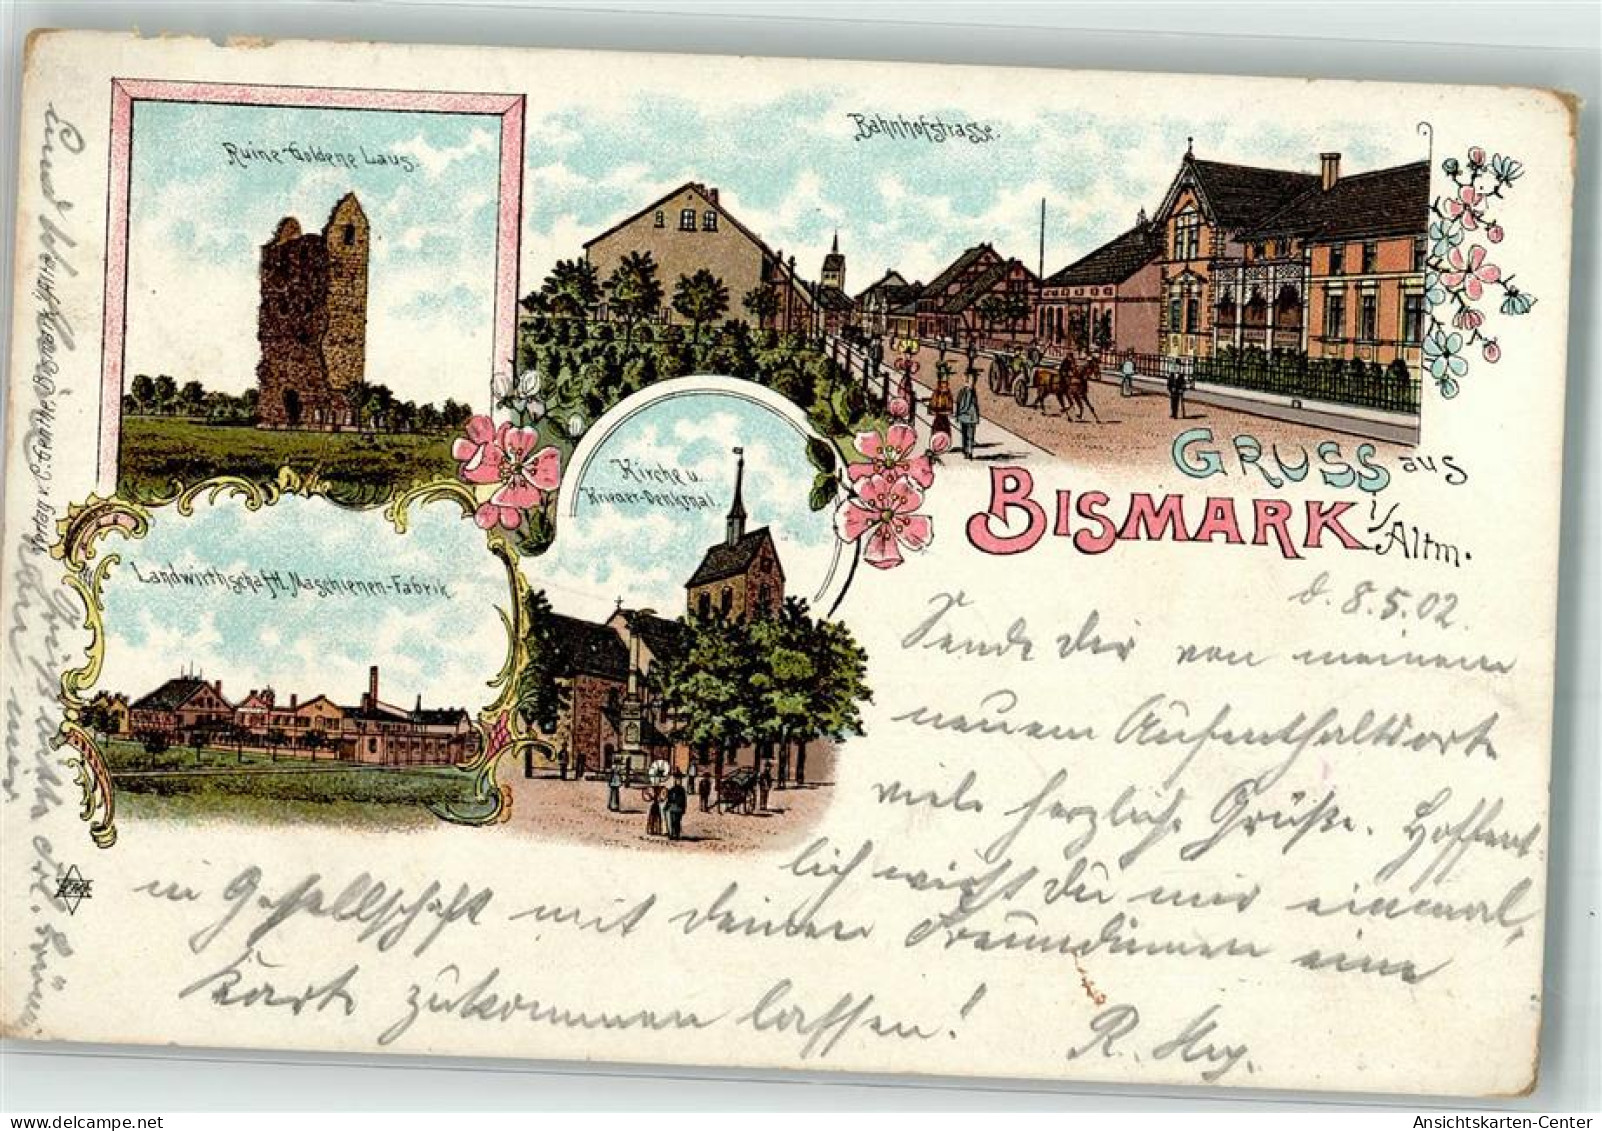 Ruine Goldene Laus.
Bahnhofstrasse.
Kirche u.
Krieger-Denkmal.
Landwirthschaftl. Maschienen-Fabrik
GRUSS aus
BISMARK i/Altm.
d. 8.5.02.
Sende Dir von meinem
neuem Aufenthaltsorte
viele herzliche Grüße. Hoffent
lich wirst Du mir einmal,
in Gesellschaft mit deinen Freundinnen eine
Karte zukommen lassen!
R.
Ansichtskarten-Center